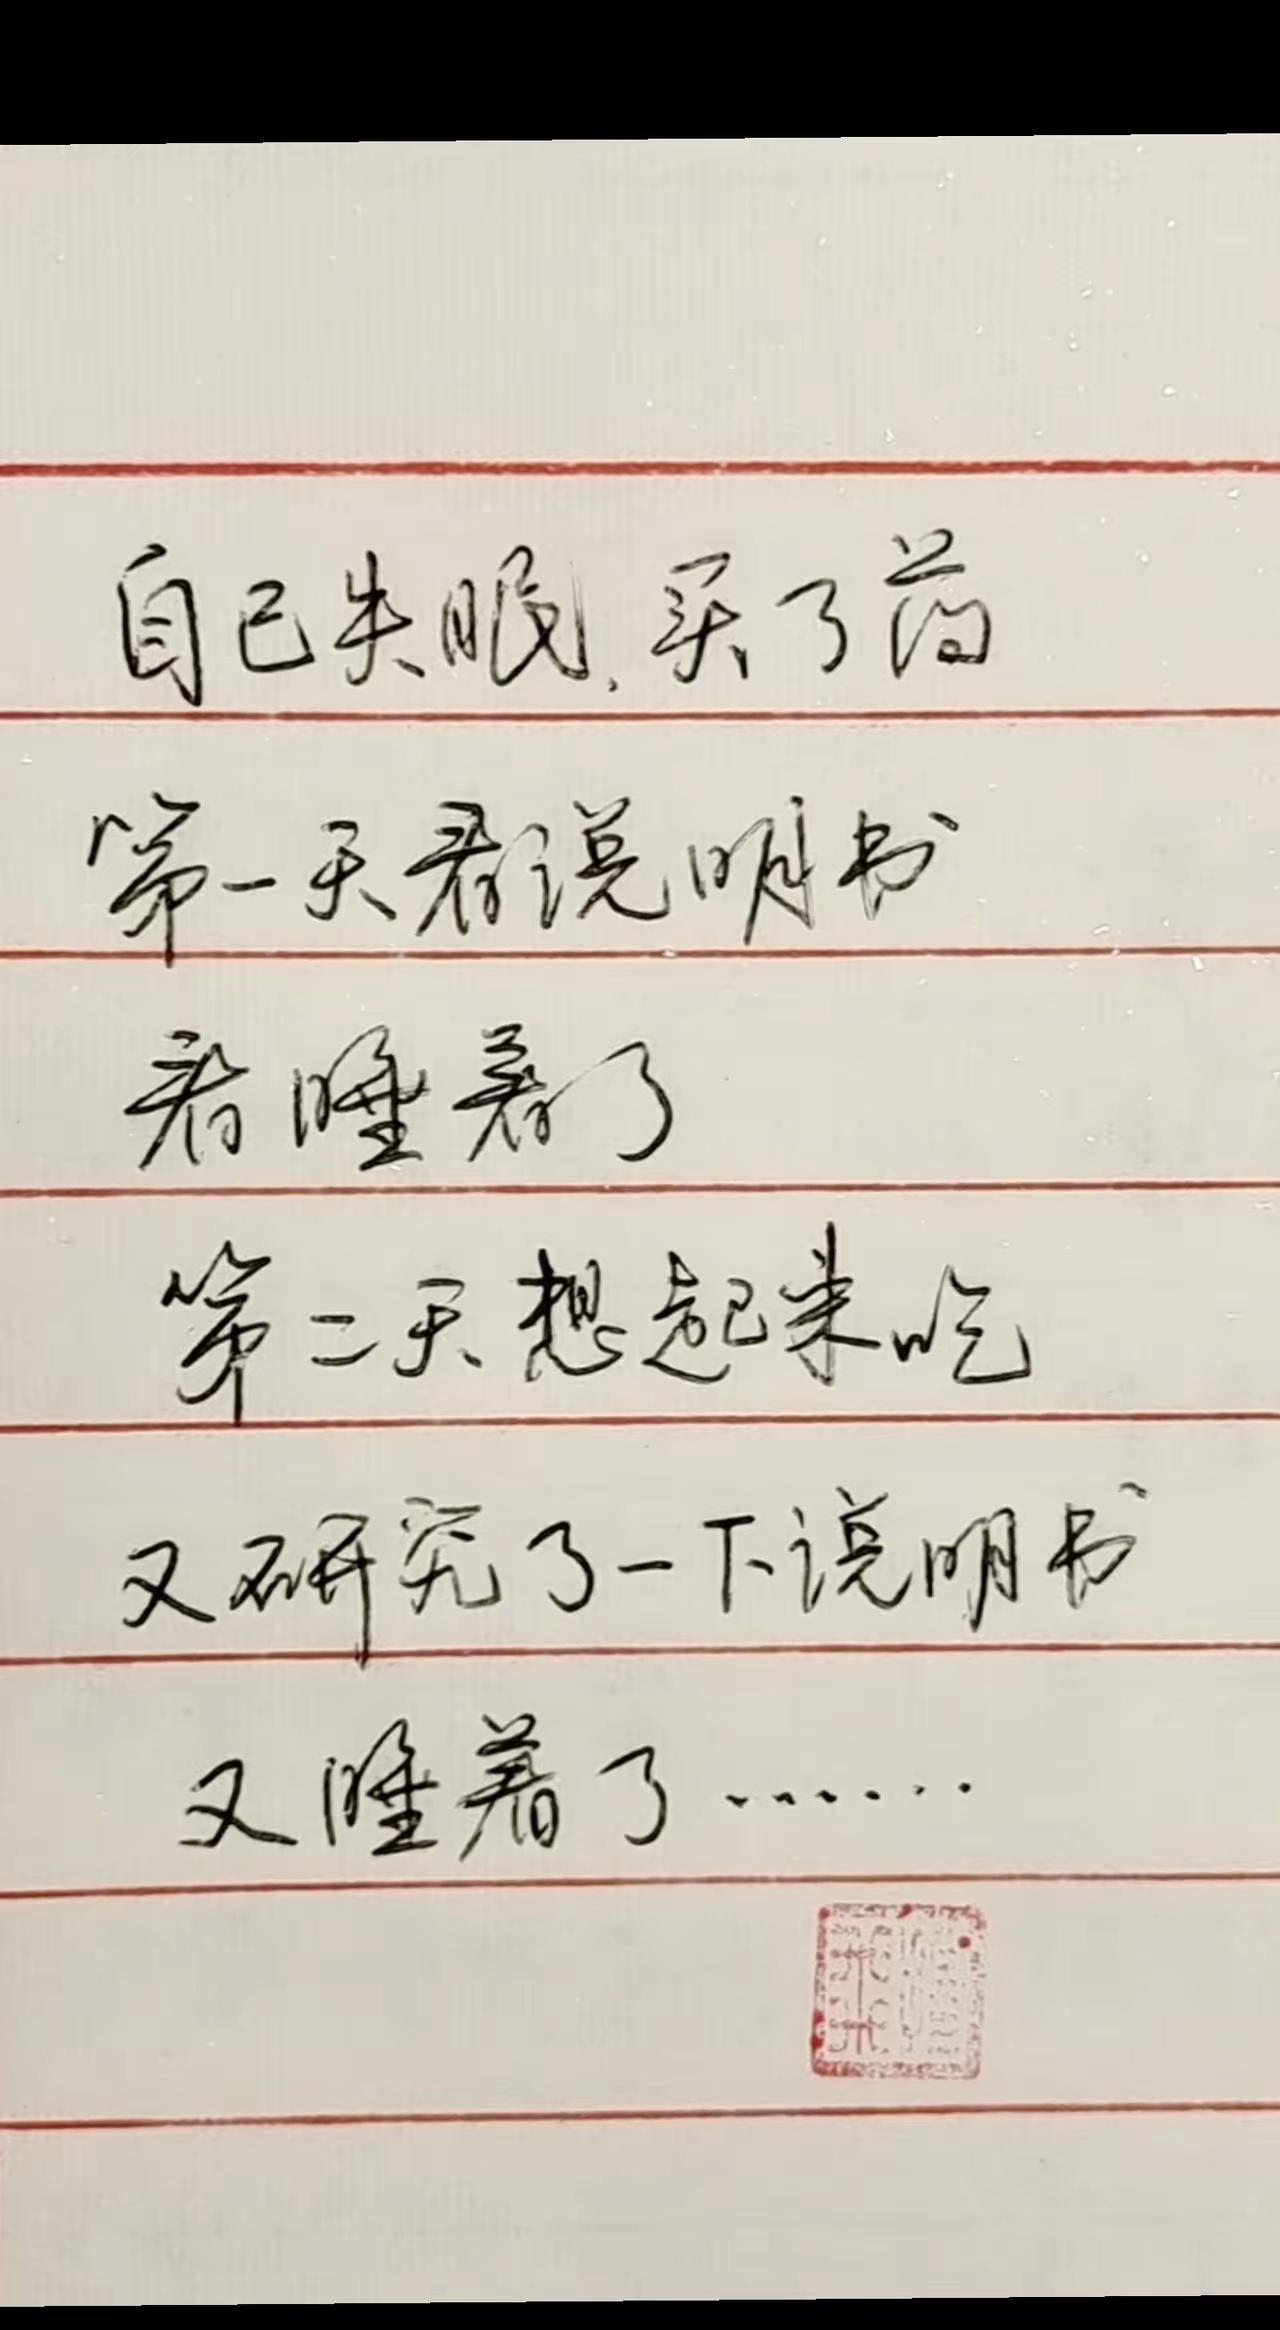 自己失眠，买了药
第一天看说明书
看睡着了
第二天想起来吃
又研究了一下说明书
又睡着了……